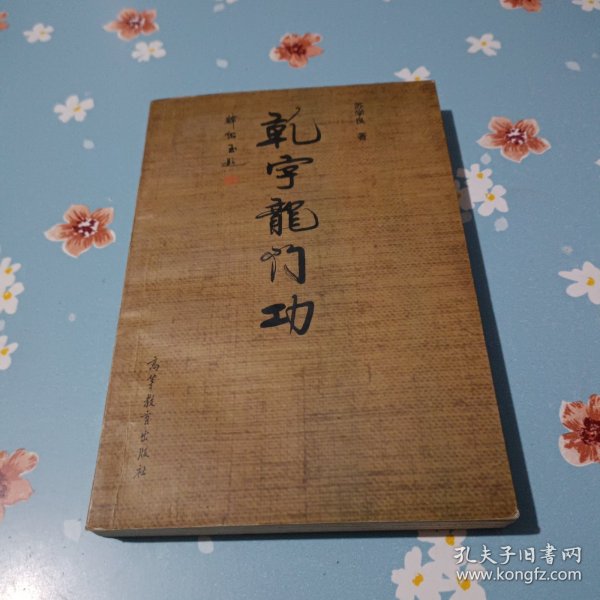 苏学良 著
乾字龍门功
高等教育出版社
孔夫子旧书网
www.kongfz.com